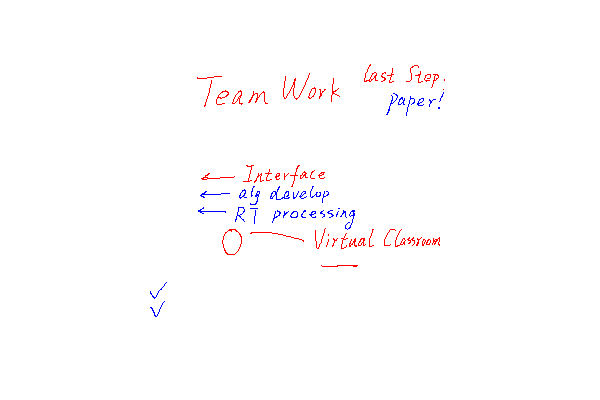 Team Work
Last Step.
paper!
Interface
alg develop
RT processing
Virtual Classroom